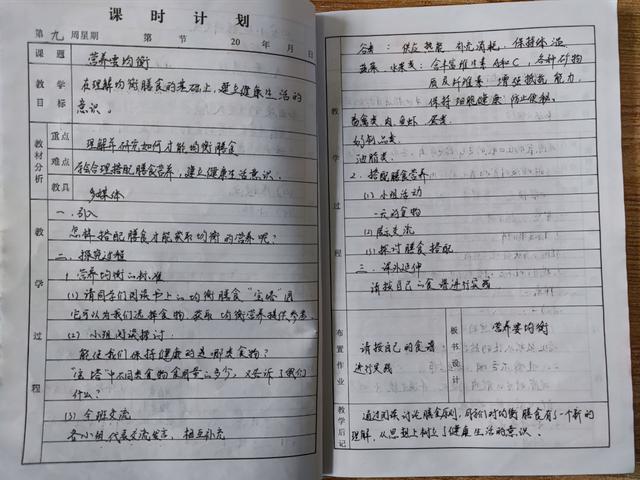 课时计划
第九周星期 第 节 20 年 月 日
课题 营养要均衡
教学目标 在理解均衡膳食的基础上,建立健康生活的
意识。
教材分析
重点 理解并研究如何才能均衡膳食
难点 学会合理搭配膳食营养,建立健康生活意识。
教具 多媒体
教学过程
一.引入
怎样搭配膳食才能获取均衡的营养呢?
二.探究过程
1.营养均衡的标准
(1)请同学们阅读书上的均衡膳食“宝塔”图
它可以为我们选择食物.获取均衡营养提供参考.
(2)小组阅读探讨:
能使我们保持健康的是哪类食物?
“宝塔”中不同类食物食用量的多少,又告诉了我们
什么?
(3)全班交流
各小组代表交流发言,相互补充
教学过程
谷类:供应热能 补充消耗,保持体温
蔬菜、水果类:含丰富维生素A和C,各种矿物
质及纤维素 增强抵抗能力,
保持细胞健康 防止便秘。
畜禽类 肉、鱼虾、蛋类
奶制品类
油脂类
2.搭配膳食营养
(1)小组活动
一天的食物
(2)展示交流
(3)探讨膳食搭配
三.课外延伸
请按自己的食谱进行实践
布置作业 请按自己的食谱
进行实践
板书设计 营养要均衡
教学后记 通过阅读讨论膳食原则,同学们对均衡膳食有了一个新的
理解,从思想上树立了健康生活的意识。